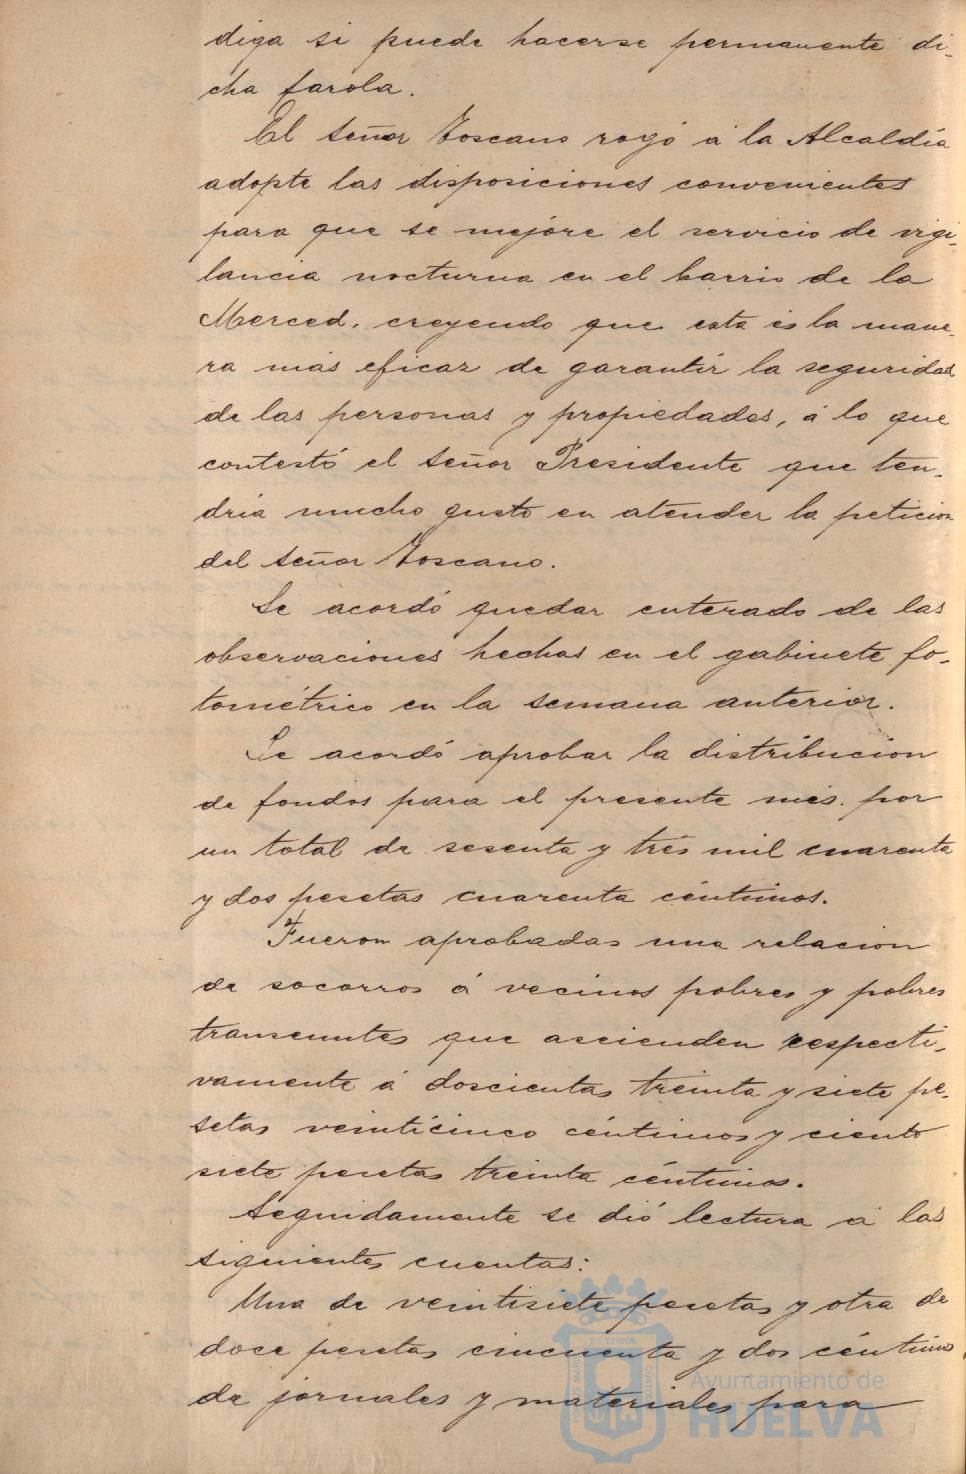 diga si puede hacerse permanente di-
cha farola.
El señor Toscano rogó á la Alcaldía
adopte las disposiciones convenientes
para que se mejore el servicio de vigi-
lancia nocturna en el barrio de la
Merced, creyendo que esta és la mane-
ra más eficaz de garantir la seguridad
de las personas y propiedades, á lo que
contestó el señor Presidente que ten-
dría mucho gusto en atender la peticion
del señor Toscano.
Se acordó quedar enterado de las
observaciones hechas en el gabinete fo-
tométrico en la semana anterior.
Se acordó aprobar la distribucion
de fondos para el presente més. por
un total de sesenta y trés mil cuarenta
y dos pesetas cuarenta céntimos.
Fueron aprobadas una relacion
de socorros á vecinos pobres y pobres
transeuntes que ascienden respecti-
vamente á doscientas treinta y siete pe-
setas veinticinco céntimos y ciento
siete pesetas treinta céntimos.
Seguidamente se dió lectura á las
siguientes cuentas:
Una de veintisiete pesetas y otra de
doce pesetas cincuenta y dos céntimos
de jornales y materiales para
Ayuntamiento de
HUELVA